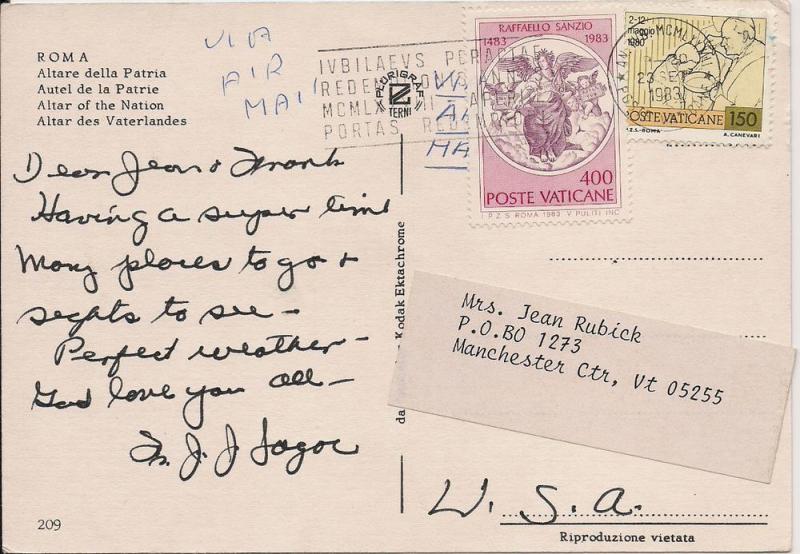 ROMA
Altare della Patria
Autel de la Patrie
Altar of the Nation
Altar des Vaterlandes
VIA
AIR
MAIL
Dear Jean & Frank
Having a super time
Many places to go &
sights to see —
Perfect weather —
God love you all —
Fr. J. J.
209
IVBILAEVS
REDEMPTIONIS ANN
MCMLX
PORTAS
PLURIGRAF
TERNI
VIA
AIR
MA
RAFFAELLO SANZIO
1483 1983
400
POSTE VATICANE
P.Z.S. ROMA 1983 V. PULITI INC
2-12
maggio
1980
23 SET
1983
POSTE VATICANE 150
P.Z.S.-ROMA A. CANEVARI
da Kodak Ektachrome
Mrs. Jean Rubick
P.O.BO 1273
Manchester Ctr, Vt 05255
U. S. A.
Riproduzione vietata